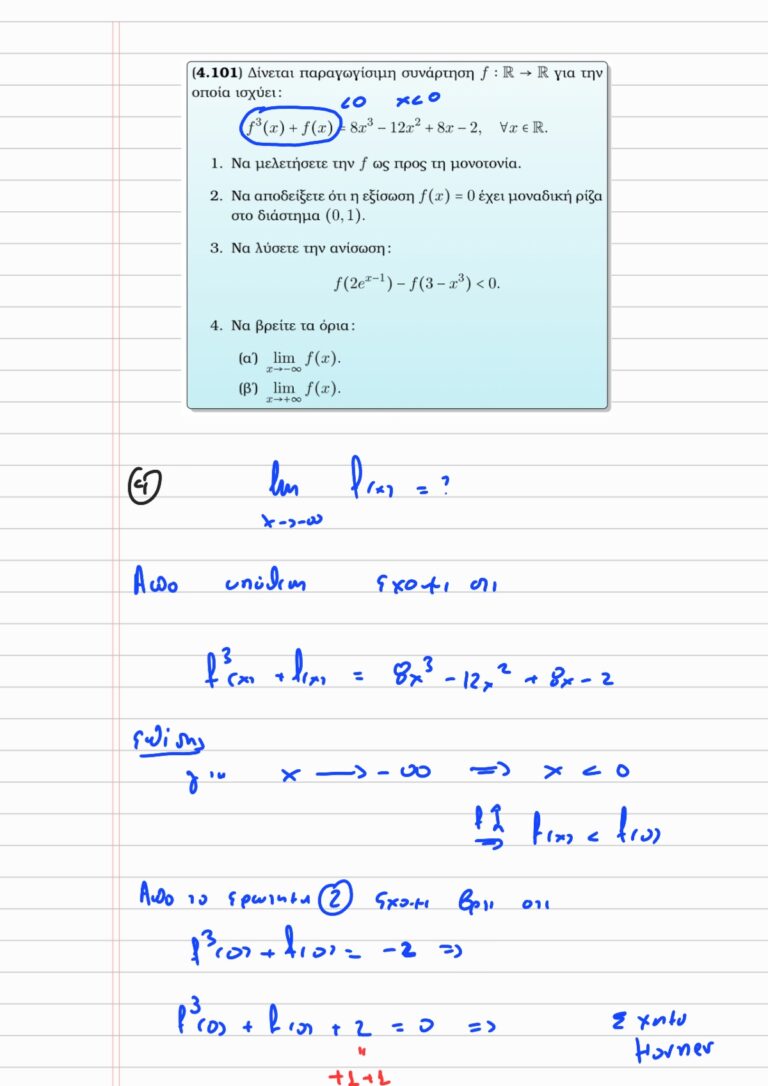 (4.101) Δίνεται παραγωγίσιμη συνάρτηση f : ℝ → ℝ για την
οποία ισχύει:
<0 x<0
f³(x) + f(x) = 8x³ − 12x² + 8x − 2, ∀x ∈ ℝ.
1. Να μελετήσετε την f ως προς τη μονοτονία.
2. Να αποδείξετε ότι η εξίσωση f(x) = 0 έχει μοναδική ρίζα
στο διάστημα (0, 1).
3. Να λύσετε την ανίσωση:
f(2e^{x−1}) − f(3 − x³) < 0.
4. Να βρείτε τα όρια:
(α΄) lim_{x→−∞} f(x).
(β΄) lim_{x→+∞} f(x).
④ lim_{x→−∞} f(x) = ?
Απο υπόθεση έχουμε οτι
f³(x) + f(x) = 8x³ − 12x² + 8x − 2
Επίσης
για x → −∞ ⇒ x < 0
f↑ ⇒ f(x) < f(0)
Απο το ερώτημα ② έχουμε βρει οτι
f³(0) + f(0) = −2 ⇒
f³(0) + f(0) + 2 = 0 ⇒ Σχήμα
Horner
+1+1